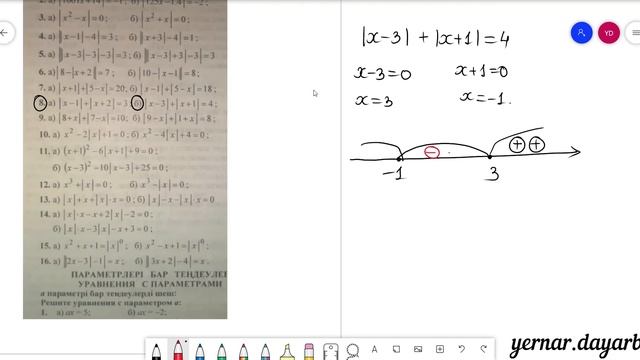 3. а) |x²−x|=0; б) |x²+x|=0;
4. а) ||x−1|−4|=3; б) ||x+3|−4|=1;
5. а) |||x−3|−3|−3|=3; б) |||x−3|+3|−3|=3
6. а) |8−|x+2||=7; б) |10−|x−1||=8;
7. а) |x+1|+|5−x|=20; б) |x+1|+|5−x|=18;
8. а) |x−1|+|x+2|=3; б) |x−3|+|x+1|=4;
9. а) |8+x|+|7−x|=10; б) |9−x|+|1+x|=8;
10. а) x²−2|x|+1=0; б) x²−4|x|+4=0;
11. а) (x+1)²−6|x+1|+9=0;
б) (x−3)²−10|x−3|+25=0;
12. а) x³+|x|=0; б) x³−|x|=0;
13. а) |x|+x+|x|·x=0; б) |x|−x−|x|·x=0
14. а) |x|·x−x+2|x|−2=0;
б) |x|·x−3|x|−x+3=0;
15. а) x²+x+1=|x|⁰; б) x²−x+1=|x|⁰;
16. а) ||2x−3|−1|=x; б) ||3x+2|−4|=x.
ПАРАМЕТРЛЕРІ БАР ТЕҢДЕУЛЕР
УРАВНЕНИЯ С ПАРАМЕТРАМИ
a параметрі бар теңдеулерді шеш:
Решите уравнения с параметром a:
1. а) ax=5; б) ax=−2;
|x−3| + |x+1| = 4
x−3=0 x+1=0
x=3 x=−1.
− + +
−1 3
YD
A
yernar.dayarb